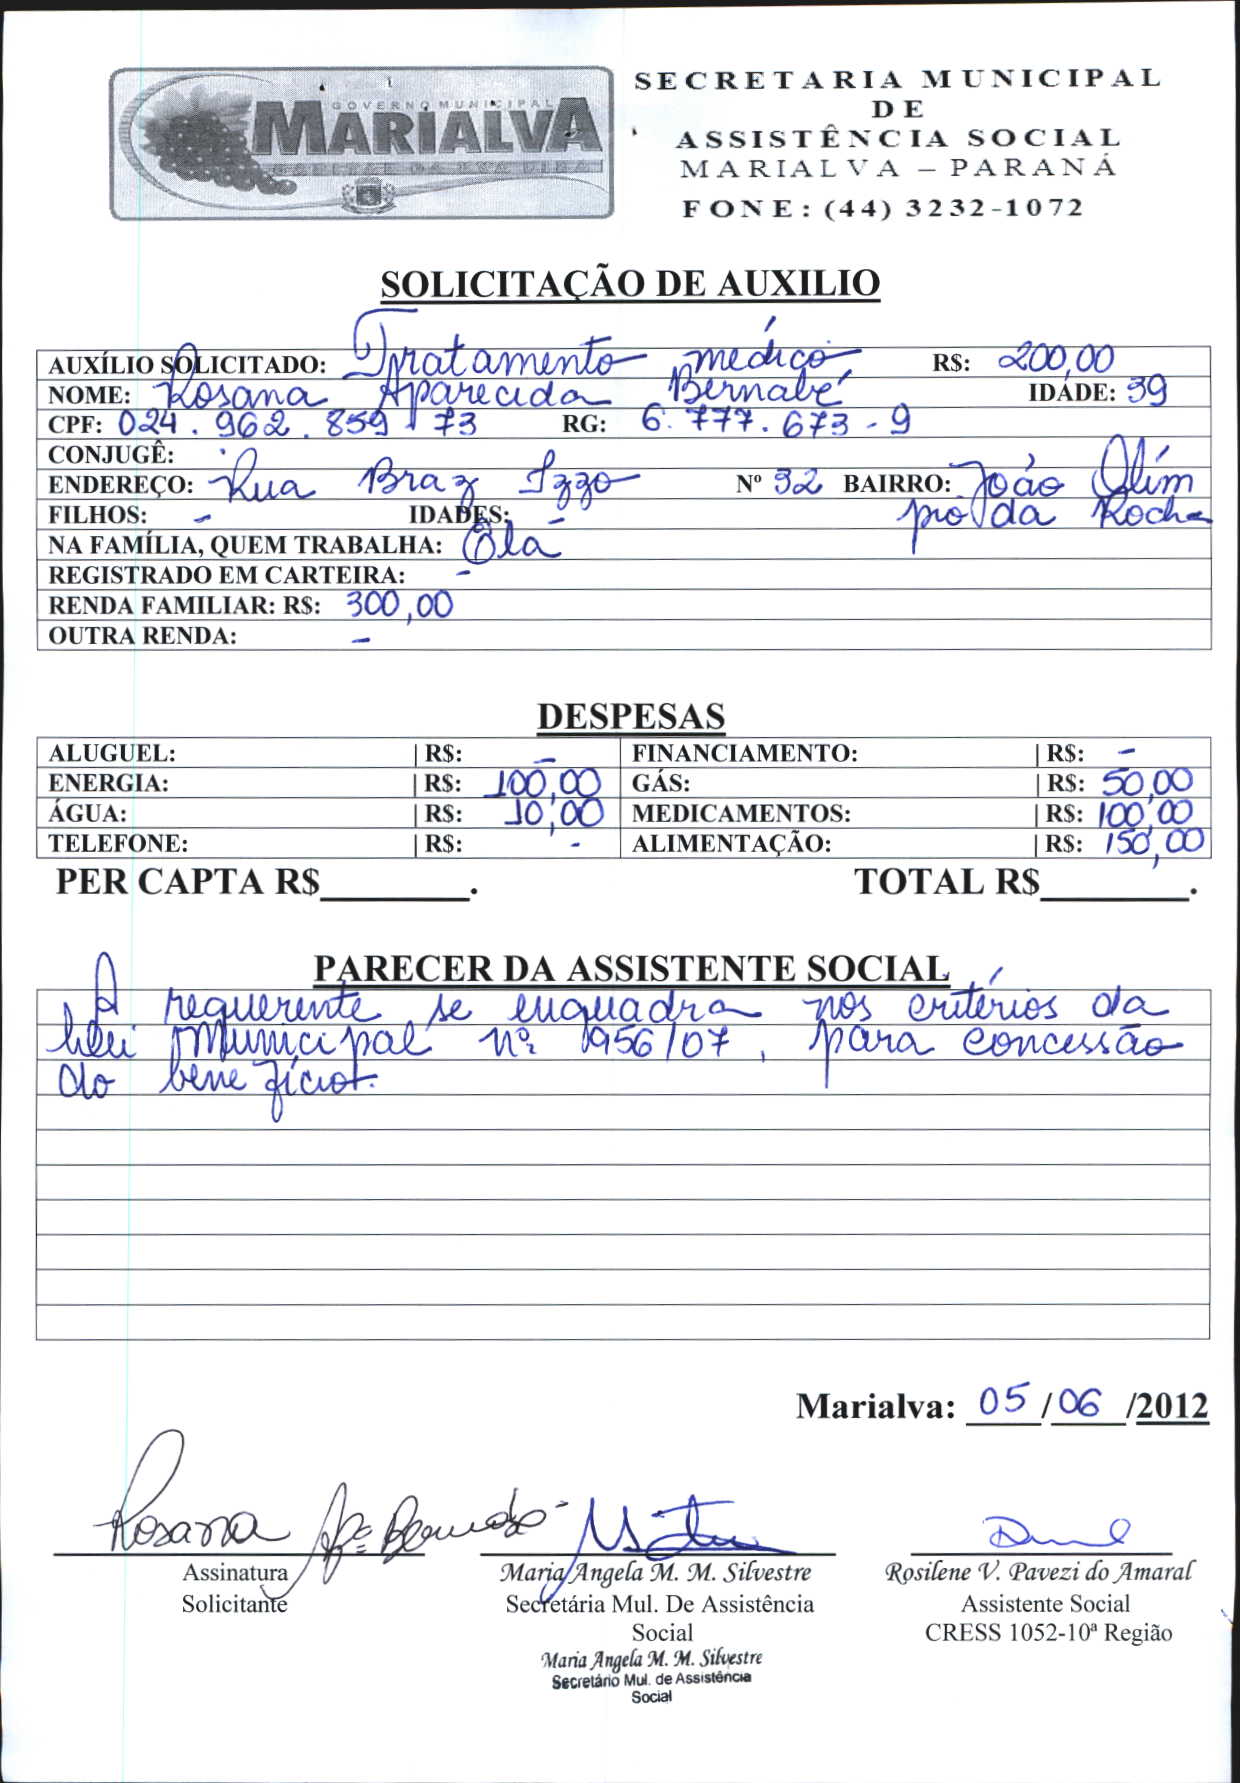 GOVERNO MUNICIPAL
MARIALVA
SECRETARIA MUNICIPAL
DE
ASSISTÊNCIA SOCIAL
MARIALVA – PARANÁ
FONE: (44) 3232-1072
SOLICITAÇÃO DE AUXILIO
AUXÍLIO SOLICITADO: Tratamento médico R$: 200,00
NOME: Rosana Aparecida Bernabé IDADE: 39
CPF: 024.962.859-73 RG: 6.777.673-9
CONJUGÊ:
ENDEREÇO: Rua Braz Izzo Nº 32 BAIRRO: João Olím
FILHOS: - IDADES: - pio da Rocha
NA FAMÍLIA, QUEM TRABALHA: Ela
REGISTRADO EM CARTEIRA: -
RENDA FAMILIAR: R$: 300,00
OUTRA RENDA: -
DESPESAS
ALUGUEL: | R$: - FINANCIAMENTO: | R$: -
ENERGIA: | R$: 100,00 GÁS: | R$: 50,00
ÁGUA: | R$: 10,00 MEDICAMENTOS: | R$: 100,00
TELEFONE: | R$: - ALIMENTAÇÃO: | R$: 150,00
PER CAPTA R$________. TOTAL R$________.
PARECER DA ASSISTENTE SOCIAL
A requerente se enquadra nos critérios da
Lei Municipal nº 1956/07, para concessão
do benefício.
Marialva: 05/06/2012
Rosana Apª Bernabé
Assinatura
Solicitante
Maria Angela M. M. Silvestre
Secretária Mul. De Assistência
Social
Maria Angela M. M. Silvestre
Secretário Mul. de Assistência
Social
Rosilene V. Pavezi do Amaral
Assistente Social
CRESS 1052-10ª Região